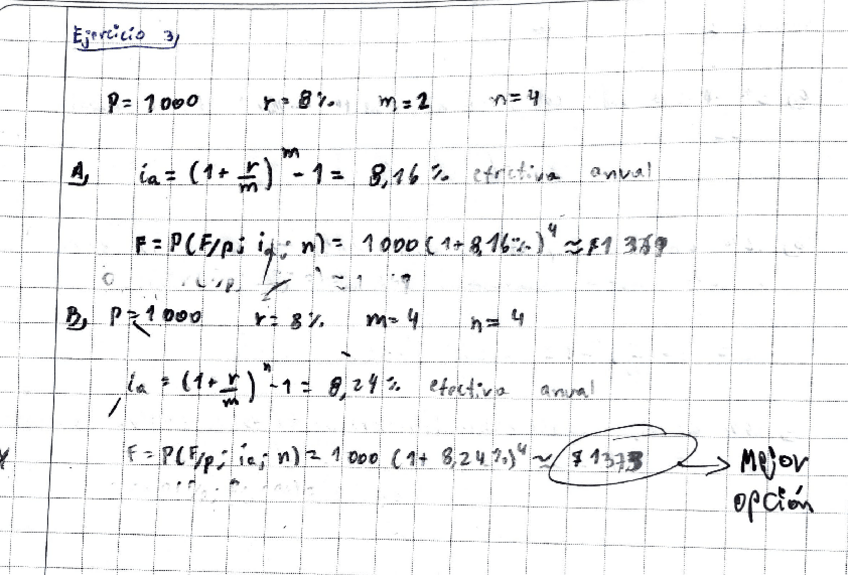 Ejercicio 3,
P = 1000 r = 8% m = 2 n = 4
A, ia = (1 + r/m)^m - 1 = 8,16% efectiva anual
F = P(F/p; ia; n) = 1000 (1 + 8,16%)^4 ≈ $1 369
B, P = 1000 r = 8% m = 4 n = 4
ia = (1 + r/m)^n - 1 = 8,24% efectiva anual
F = P(F/p; ia; n) = 1000 (1 + 8,24%)^4 ≈ $1373 → Mejor
opción